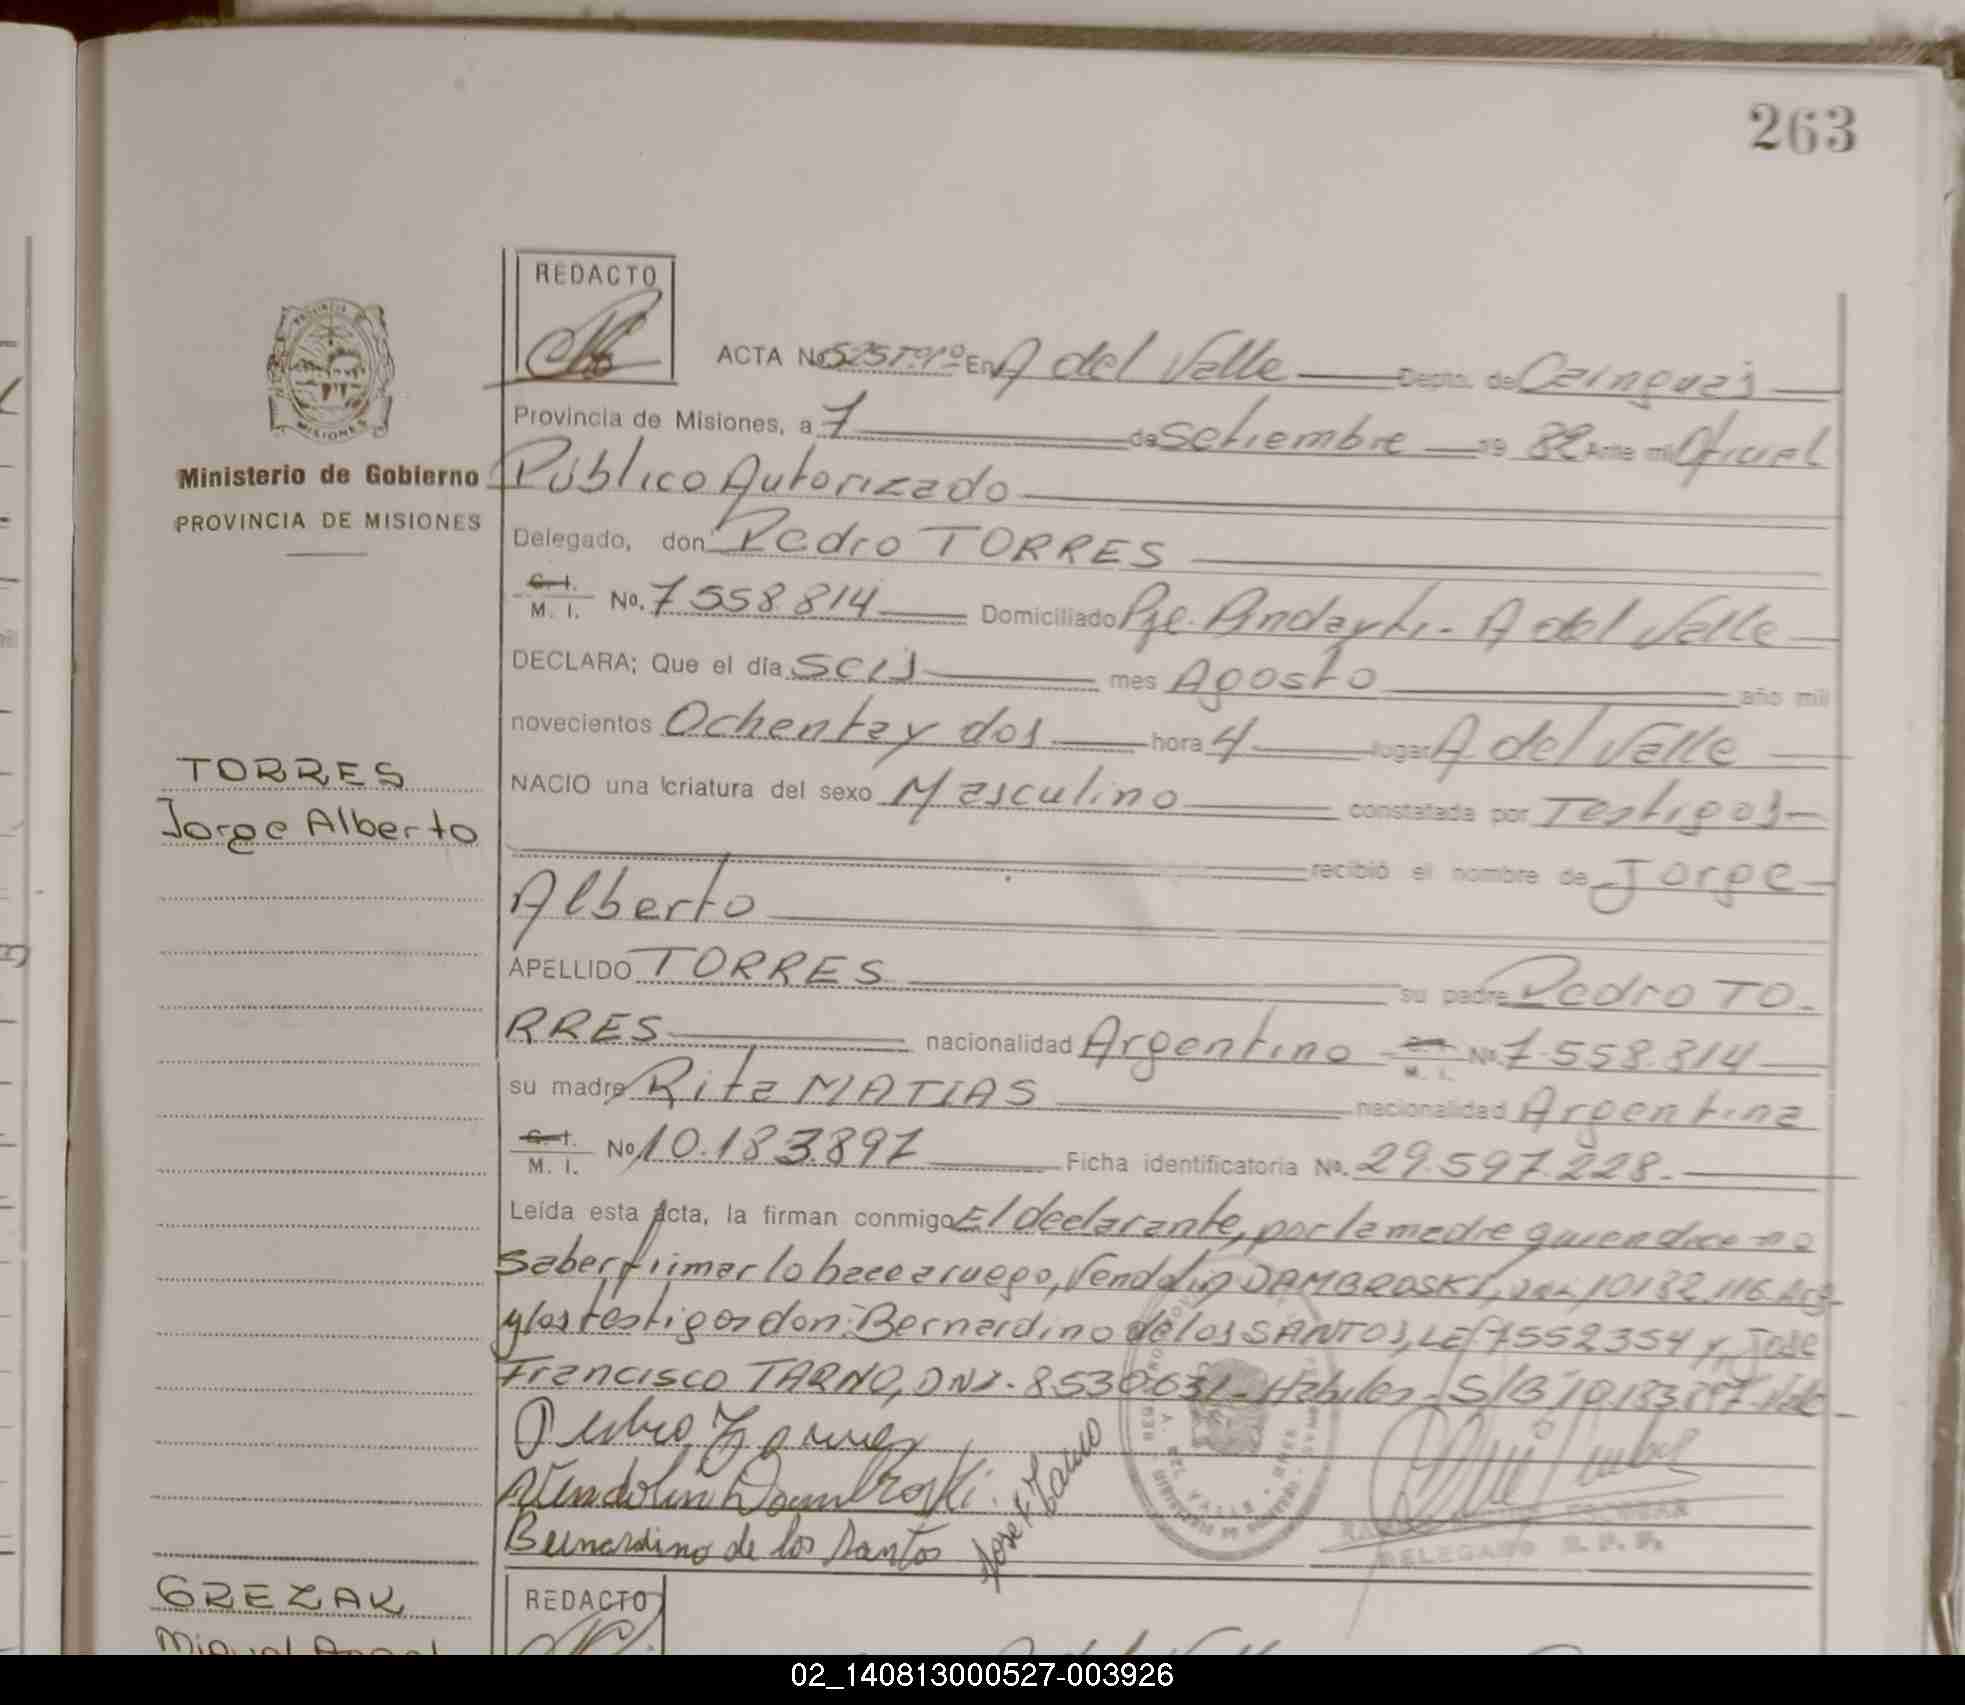 263
REDACTO
ACTA No 525 Tº1º En A del Valle Depto. de Cainguas
Provincia de Misiones, a 7 de Setiembre 19 82 Ante mi Oficial
Ministerio de Gobierno
Público Autorizado
PROVINCIA DE MISIONES
Delegado, don Pedro TORRES
C. I.
M. I. No. 7558.814 Domiciliado Pje. - A del Valle
DECLARA; Que el día seis mes Agosto año mil
novecientos Ochenta y dos hora 4 lugar A del Valle
TORRES
NACIO una criatura del sexo Masculino constatada por Testigos
Jorge Alberto
recibió el nombre de Jorge
Alberto
APELLIDO TORRES su padre Pedro TO-
RRES nacionalidad Argentino M. I. No. 7.558.814
su madre Rita MATIAS nacionalidad Argentina
C. I.
M. I. No 10.183.897 Ficha identificatoria No. 29.597.228.-
Leída esta acta, la firman conmigo El declarante, por la madre quien dice no
saber firmar lo hace a ruego, Vendolin DAMBROSKI, DNI 10132.116 Arg
y los testigos don: Bernardino de los SANTOS, LE 7552354 y, Jose
Francisco TARNO, DNI. 8530.631- Habiles - S/B 10.183.897 Vale
Pedro Torres
Wendolin Dambroski
Jose F Tarno
Bernardino de los Santos
ESCOBAR
DELEGADO R. P. P.
GREZAK
REDACTO
Miguel Angel
02_140813000527-003926